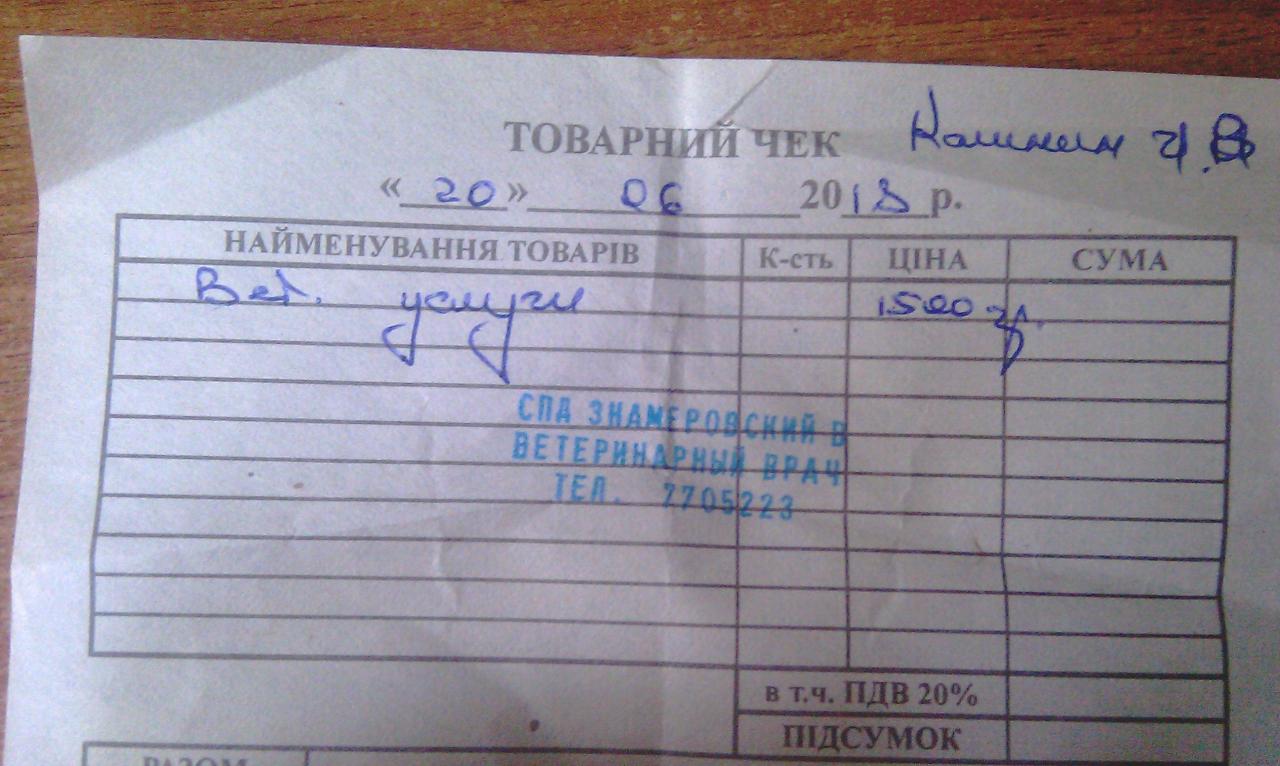 ТОВАРНИЙ ЧЕК
« 20 » 06 2018 р.
НАЙМЕНУВАННЯ ТОВАРІВ К-сть ЦІНА СУМА
Вет. услуги 1500 гр.
СПД ЗНАМЕРОВСКИЙ В
ВЕТЕРИНАРНЫЙ ВРАЧ
ТЕЛ. 7705223
в т.ч. ПДВ 20%
ПІДСУМОК
РАЗОМ